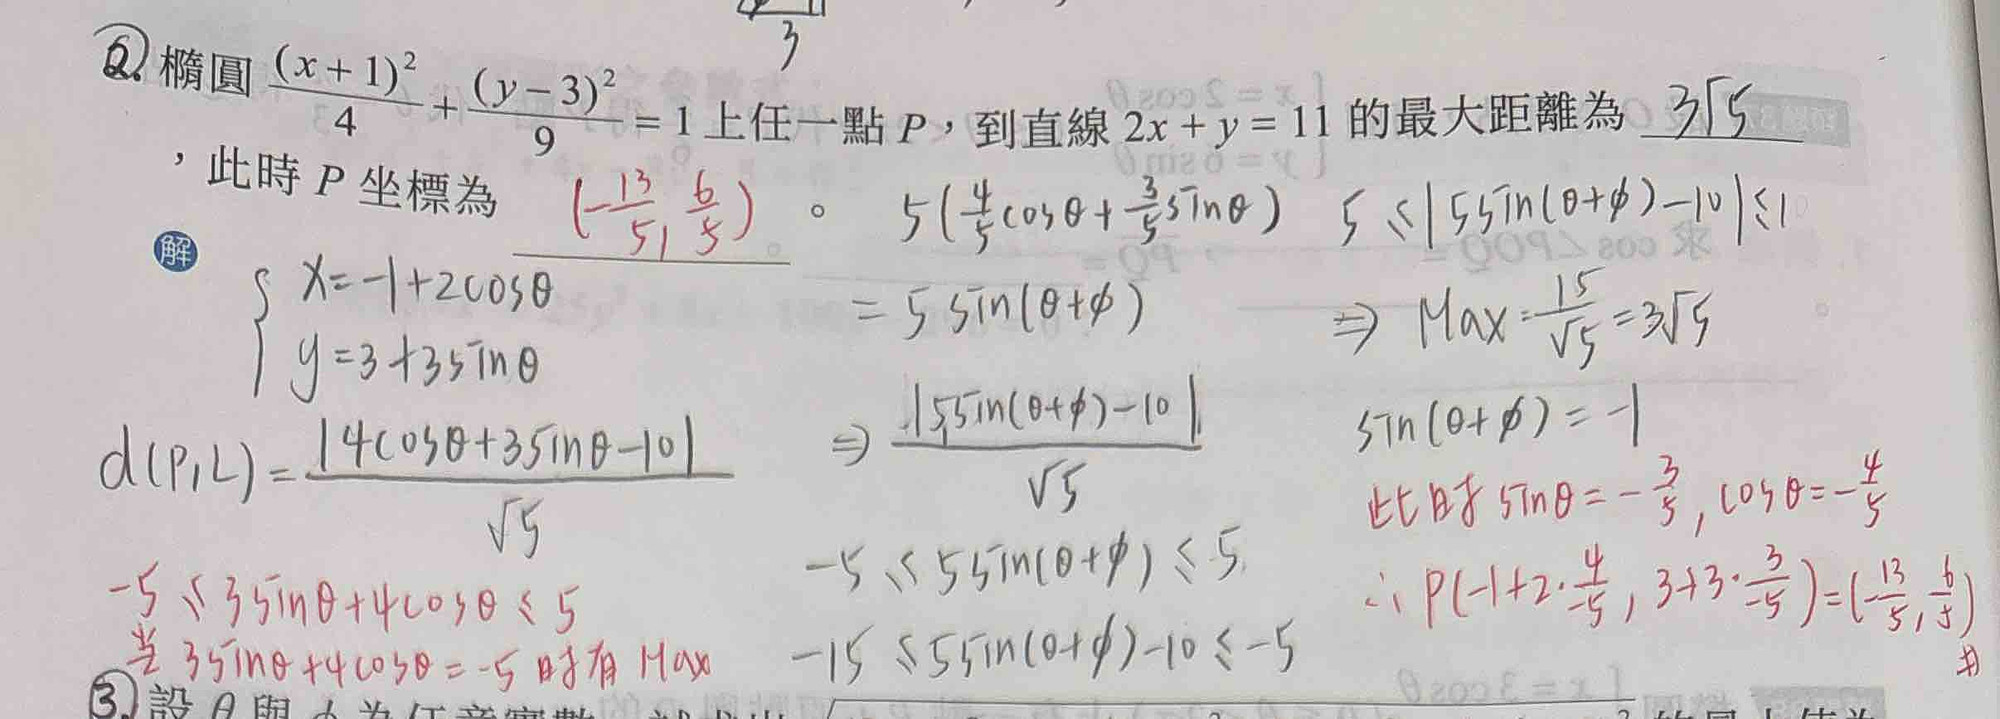 3
2. 橢圓 (x+1)²/4 + (y-3)²/9 = 1 上任一點 P，到直線 2x+y=11 的最大距離為 3√5
，此時 P 坐標為 (-13/5, 6/5) 。
解
{ x=-1+2cosθ
y=3+3sinθ
d(P,L)= |4cosθ+3sinθ-10| / √5
-5 ≤ 3sinθ+4cosθ ≤ 5
当 3sinθ+4cosθ = -5 时有 Max
5(4/5 cosθ + 3/5 sinθ)
= 5 sin(θ+φ)
⇒ |5sin(θ+φ)-10| / √5
-5 ≤ 5sin(θ+φ) ≤ 5
-15 ≤ 5sin(θ+φ)-10 ≤ -5
5 ≤ |5sin(θ+φ)-10| ≤ 1
⇒ Max = 15/√5 = 3√5
sin(θ+φ) = -1
此时 sinθ = -3/5, cosθ = -4/5
∴ P(-1+2·4/-5, 3+3·3/-5) = (-13/5, 6/5)
#
3. 設 θ 與 φ 為任意實數